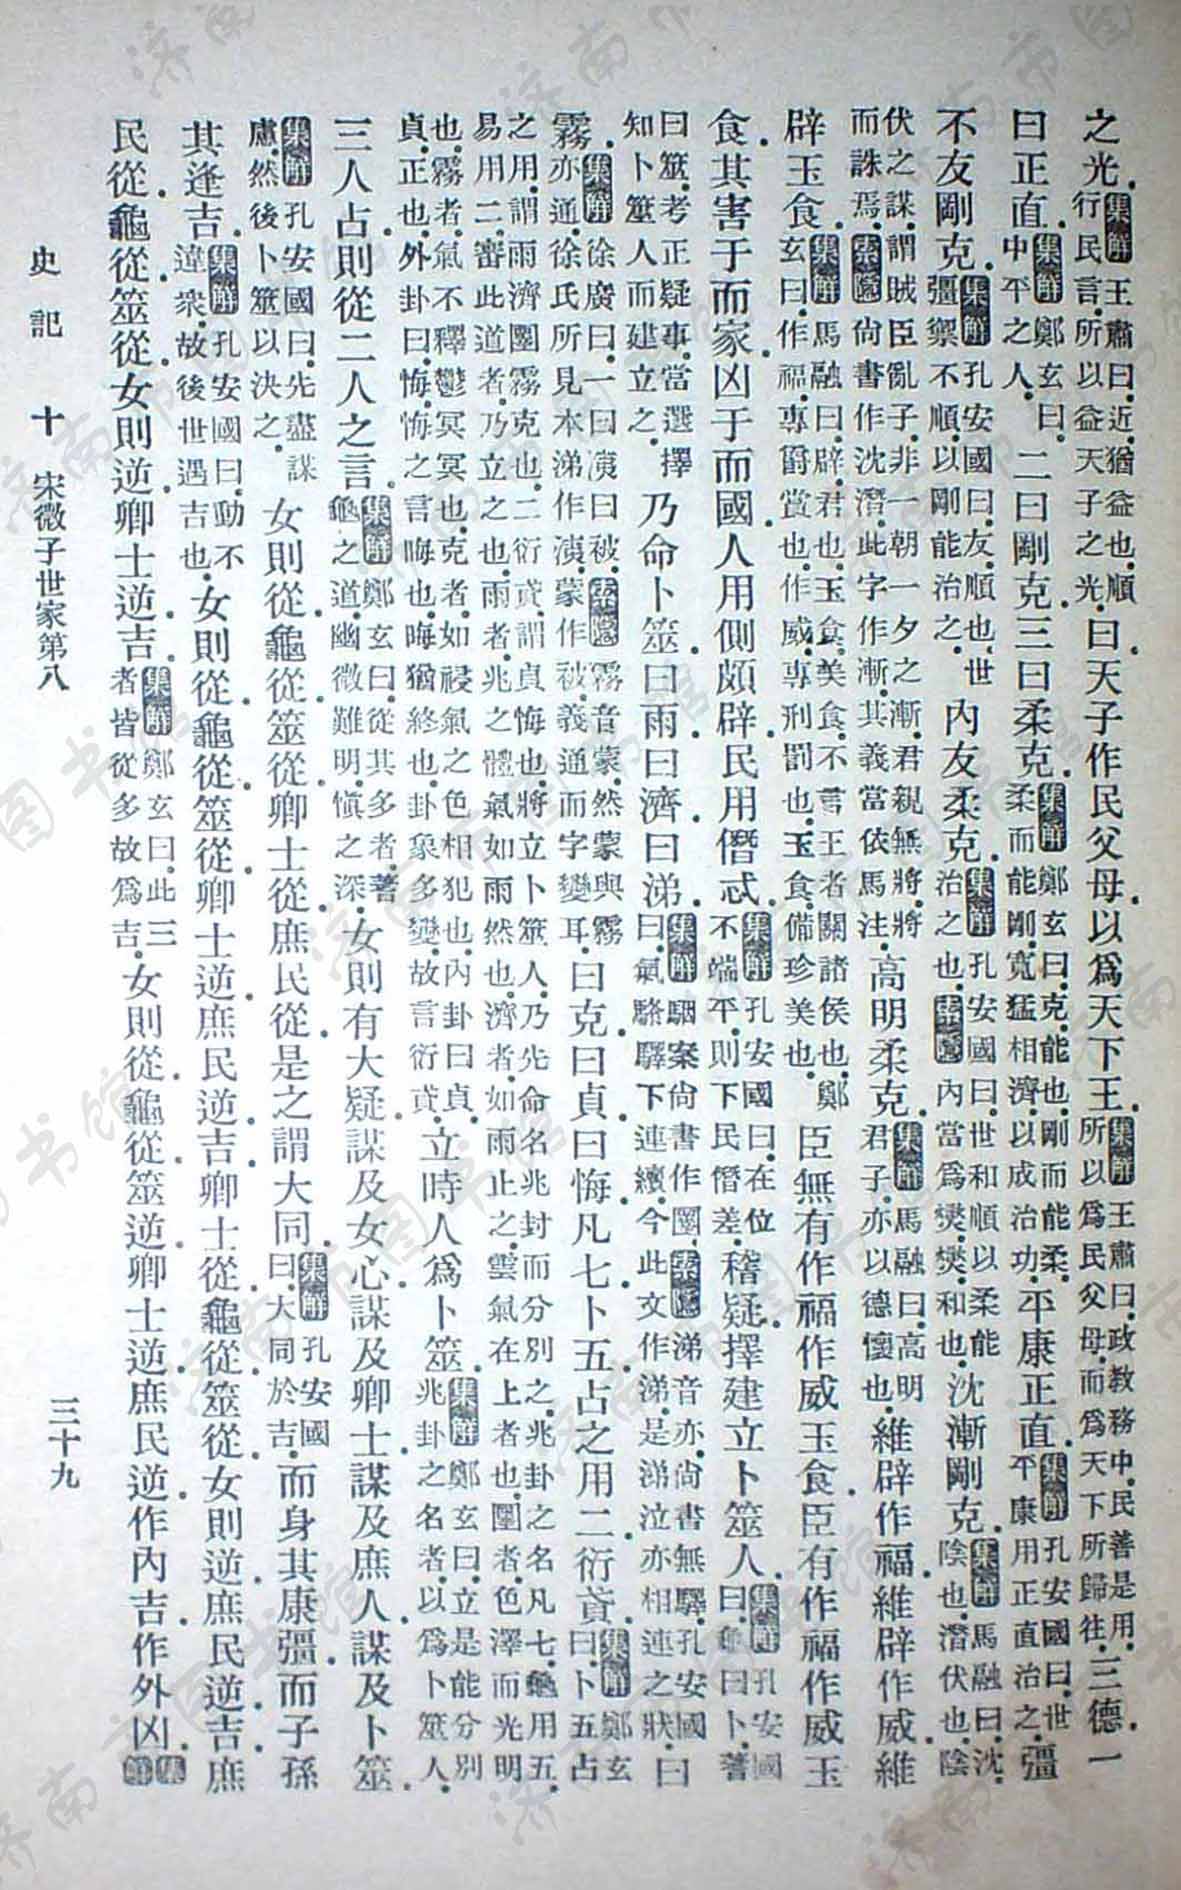 之光。集解王肅曰。近猶益也。順行民言。所以益天子之光。曰。天子作民父母。以爲天下王。集解王肅曰。政教務中。民善是用。所以爲民父母。而爲天下所歸往。三德。一
曰正直。集解鄭玄曰。中平之人。二曰剛克。三曰柔克。集解鄭玄曰。克能也。剛而能柔。柔而能剛。寬猛相濟。以成治功。平康正直。集解孔安國曰。世平康用正直治之。彊
不友剛克。集解孔安國曰。友順也。世彊禦不順。以剛能治之。內友柔克。集解孔安國曰。世和順以柔能治之也。索隱內當爲燮。燮和也。沈漸剛克。集解馬融曰。沈陰也。潛伏也。陰
伏之謀。謂賊臣亂子非一朝一夕之漸。君親無將。將而誅焉。索隱尚書作沈潛。此字作漸。其義當依馬注。高明柔克。集解馬融曰。高明君子。亦以德懷也。維辟作福。維辟作威。維
辟玉食。集解馬融曰。辟君也。玉食美食。不言王者關諸侯也。鄭玄曰。作福專爵賞也。作威專刑罰也。玉食備珍美也。臣無有作福作威玉食。臣有作福作威玉
食。其害于而家。凶于而國。人用側頗辟。民用僭忒。集解孔安國曰。在位不端平。則下民僭差。稽疑。擇建立卜筮人。集解孔安國曰。龜曰卜。蓍
曰筮。考正疑事。當選擇知卜筮人而建立之。乃命卜筮。曰雨。曰濟。曰涕。集解駰案尚書作圛。索隱涕音亦。尚書無驛。孔安國曰。氣駱驛下連續。今此文作涕。是涕泣亦相連之狀。曰
霧。集解徐廣曰。一曰洟曰被。索隱霧音蒙。然蒙與霧亦通。徐氏所見本涕作洟。蒙作被。義通而字變耳。曰克。曰貞。曰悔。凡七。卜五。占之用二。衍貣。集解鄭玄曰。卜五占
之用。謂雨濟圛霧克也。二衍貣。謂貞悔也。將立卜筮人。乃先命名兆封而分別之。兆卦之名凡七。龜用五。易用二。審此道者。乃立之也。雨者。兆之體氣如雨然也。濟者。如雨止之雲氣在上者也。圛者。色澤而光明
也。霧者。氣不釋鬱冥冥也。克者。如祲氣之色相犯也。內卦曰貞。貞。正也。外卦曰悔。悔之言晦也。晦猶終也。卦象多變。故言衍貣。立時人爲卜筮。集解鄭玄曰。立是能分別兆卦之名者。以爲卜筮人。
三人占。則從二人之言。集解鄭玄曰。從其多者。蓍龜之道。幽微難明。愼之深。女則有大疑。謀及女心。謀及卿士。謀及庶人。謀及卜筮。
集解孔安國曰。先盡謀慮。然後卜筮以決之。女則從。龜從。筮從。卿士從。庶民從。是之謂大同。集解孔安國曰。大同於吉。而身其康彊。而子孫
其逢吉。集解孔安國曰。動不違衆。故後世遇吉也。女則從。龜從。筮從。卿士逆。庶民逆。吉。卿士從。龜從。筮從。女則逆。庶民逆。吉。庶
民從。龜從。筮從。女則逆。卿士逆。吉。集解鄭玄曰。此三者皆從多。故爲吉。女則從。龜從。筮逆。卿士逆。庶民逆。作內吉。作外凶。集解
史記 十 宋微子世家第八 三十九
济南市图书馆